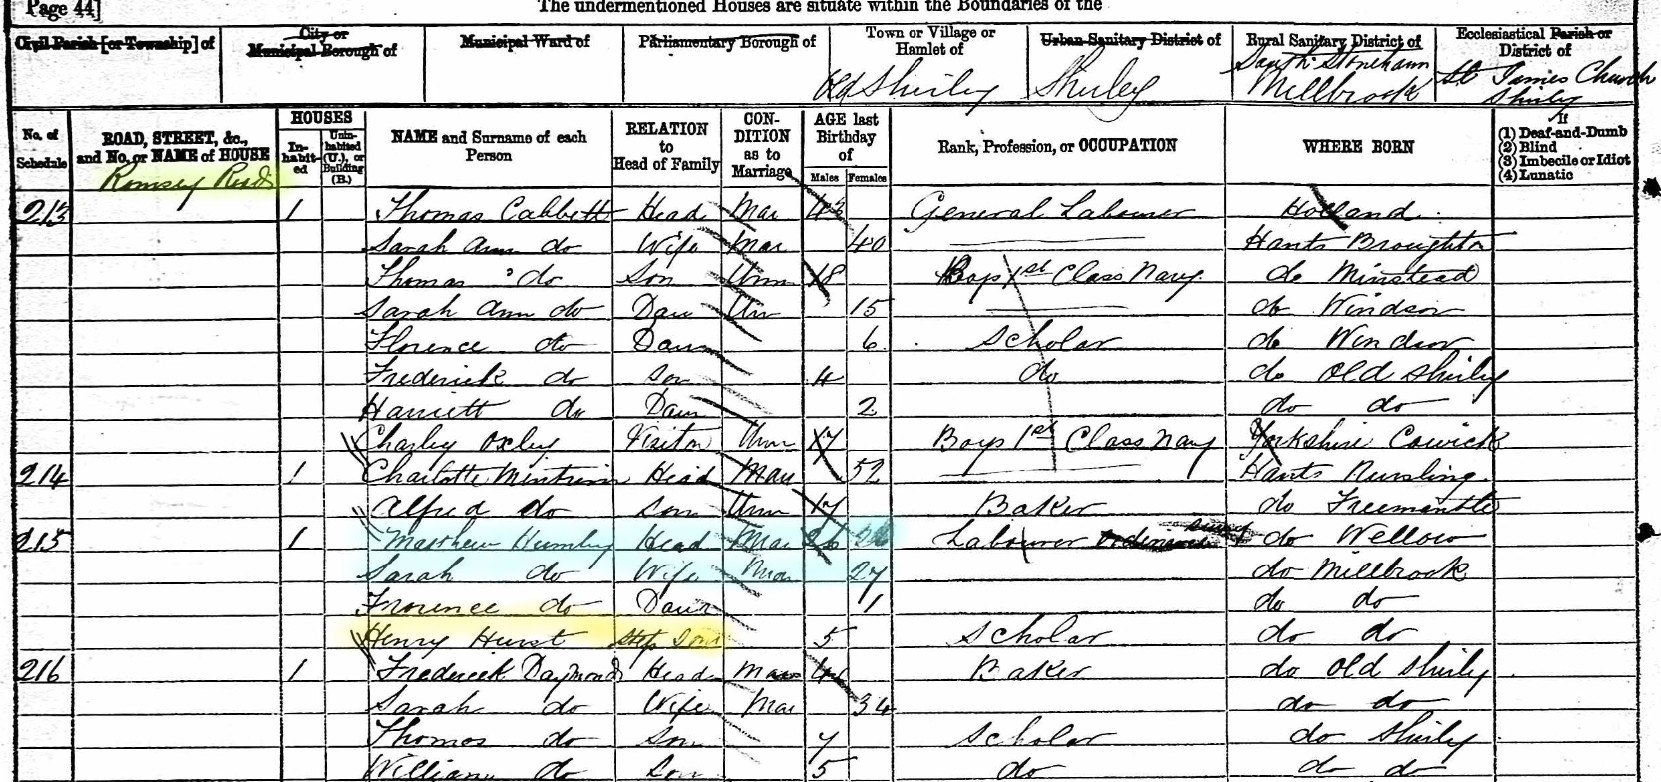 Page 44]
The undermentioned Houses are situate within the Boundaries of the
Civil Parish [or Township] of
City or Municipal Borough of
Municipal Ward of
Parliamentary Borough of
Town or Village or Hamlet of
Urban Sanitary District of
Rural Sanitary District of
Ecclesiastical Parish or District of
Old Shirley
Shirley
South Stoneham Millbrook
St James Church Shirley
No. of Schedule
ROAD, STREET, &c., and No. or NAME of HOUSE
HOUSES
In-habit-ed
Unin-habited (U.), or Building (B.)
NAME and Surname of each Person
RELATION to Head of Family
CON-DITION as to Marriage
AGE last Birthday of
Males Females
Rank, Profession, or OCCUPATION
WHERE BORN
If
(1) Deaf-and-Dumb
(2) Blind
(3) Imbecile or Idiot
(4) Lunatic
Romsey Road
213 1 Thomas Cabbett Head Mar 43 General Labourer Holland
Sarah Ann do Wife Mar 40 Hants Broughton
Thomas do Son Unm 18 Boys 1st Class Navy do Minstead
Sarah Ann do Daur Un 15 do Windsor
Florence do Daur 6 Scholar do Windsor
Frederick do Son 4 do do Old Shirley
Harriett do Daur 2 do do
Charley Oxley Visitor Unm 17 Boys 1st Class Navy Yorkshire Cowick
214 1 Charlotte Head Mar 52 Hants Nursling
Alfred do Son Unm 17 Baker do Freemantle
215 1 Matthew Humby Head Mar 26 Labourer do Wellow
Sarah do Wife Mar 27 do Millbrook
Florence do Daur 1 do do
Henry Hurst Step Son 5 Scholar do do
216 1 Frederick Daymond Head Mar Baker do Old Shirley
Sarah do Wife Mar 34 do do
Thomas do Son 7 Scholar do Shirley
William do Son 5 do do do